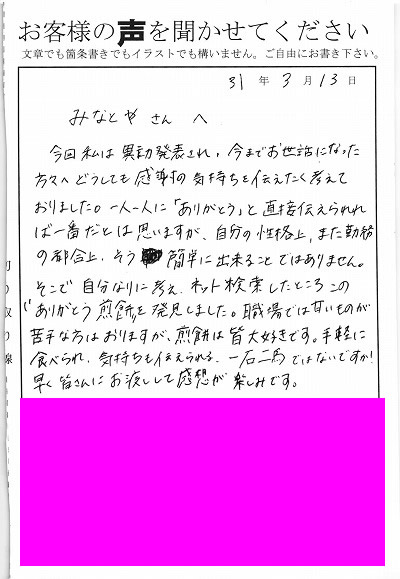 お客様の声を聞かせてください
文章でも箇条書きでもイラストでも構いません。ご自由にお書き下さい。
31年3月13日
みなとやさんへ
今回私は異動発表され、今までお世話になった
方々へどうしても感謝の気持ちを伝えたく考えて
おりました。一人一人に「ありがとう」と直接伝えられれ
ば一番だとは思いますが、自分の性格上、また勤務
の都合上、そう簡単に出来ることではありません。
そこで自分なりに考え、ネット検索したところこの
"ありがとう煎餅"を発見しました。職場では甘いものが
苦手な方はおりますが、煎餅は皆大好きです。手軽に
食べられ、気持ちも伝えられる、一石二鳥ではないですか!
早く皆さんにお渡しして感想が楽しみです。
切り取り線